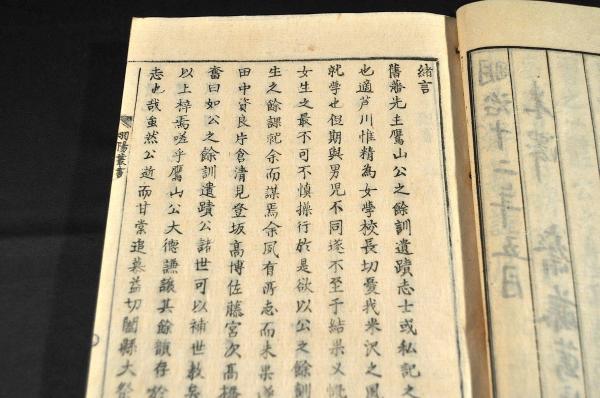 明治十二年五月
緒言
舊藩先主鷹山公之餘訓遺蹟志士或私記之
也適芦川惟精為女學校長切憂我米沢之風
就学也但期與男児不同遂不至于結果
女生之最不可不慎操行於是欲以公之餘訓
生之餘課就余而謀焉余夙有所志而未果
田中資良片倉清見登坂高博佐藤宮次髙
奮曰如公之餘訓遺蹟公諸世可以補世教矣
以上梓焉嗟乎鷹山公大德謙譲其餘韻存
志也哉虽然公逝而甘棠追慕益切闔縣大祭
羽陽叢書